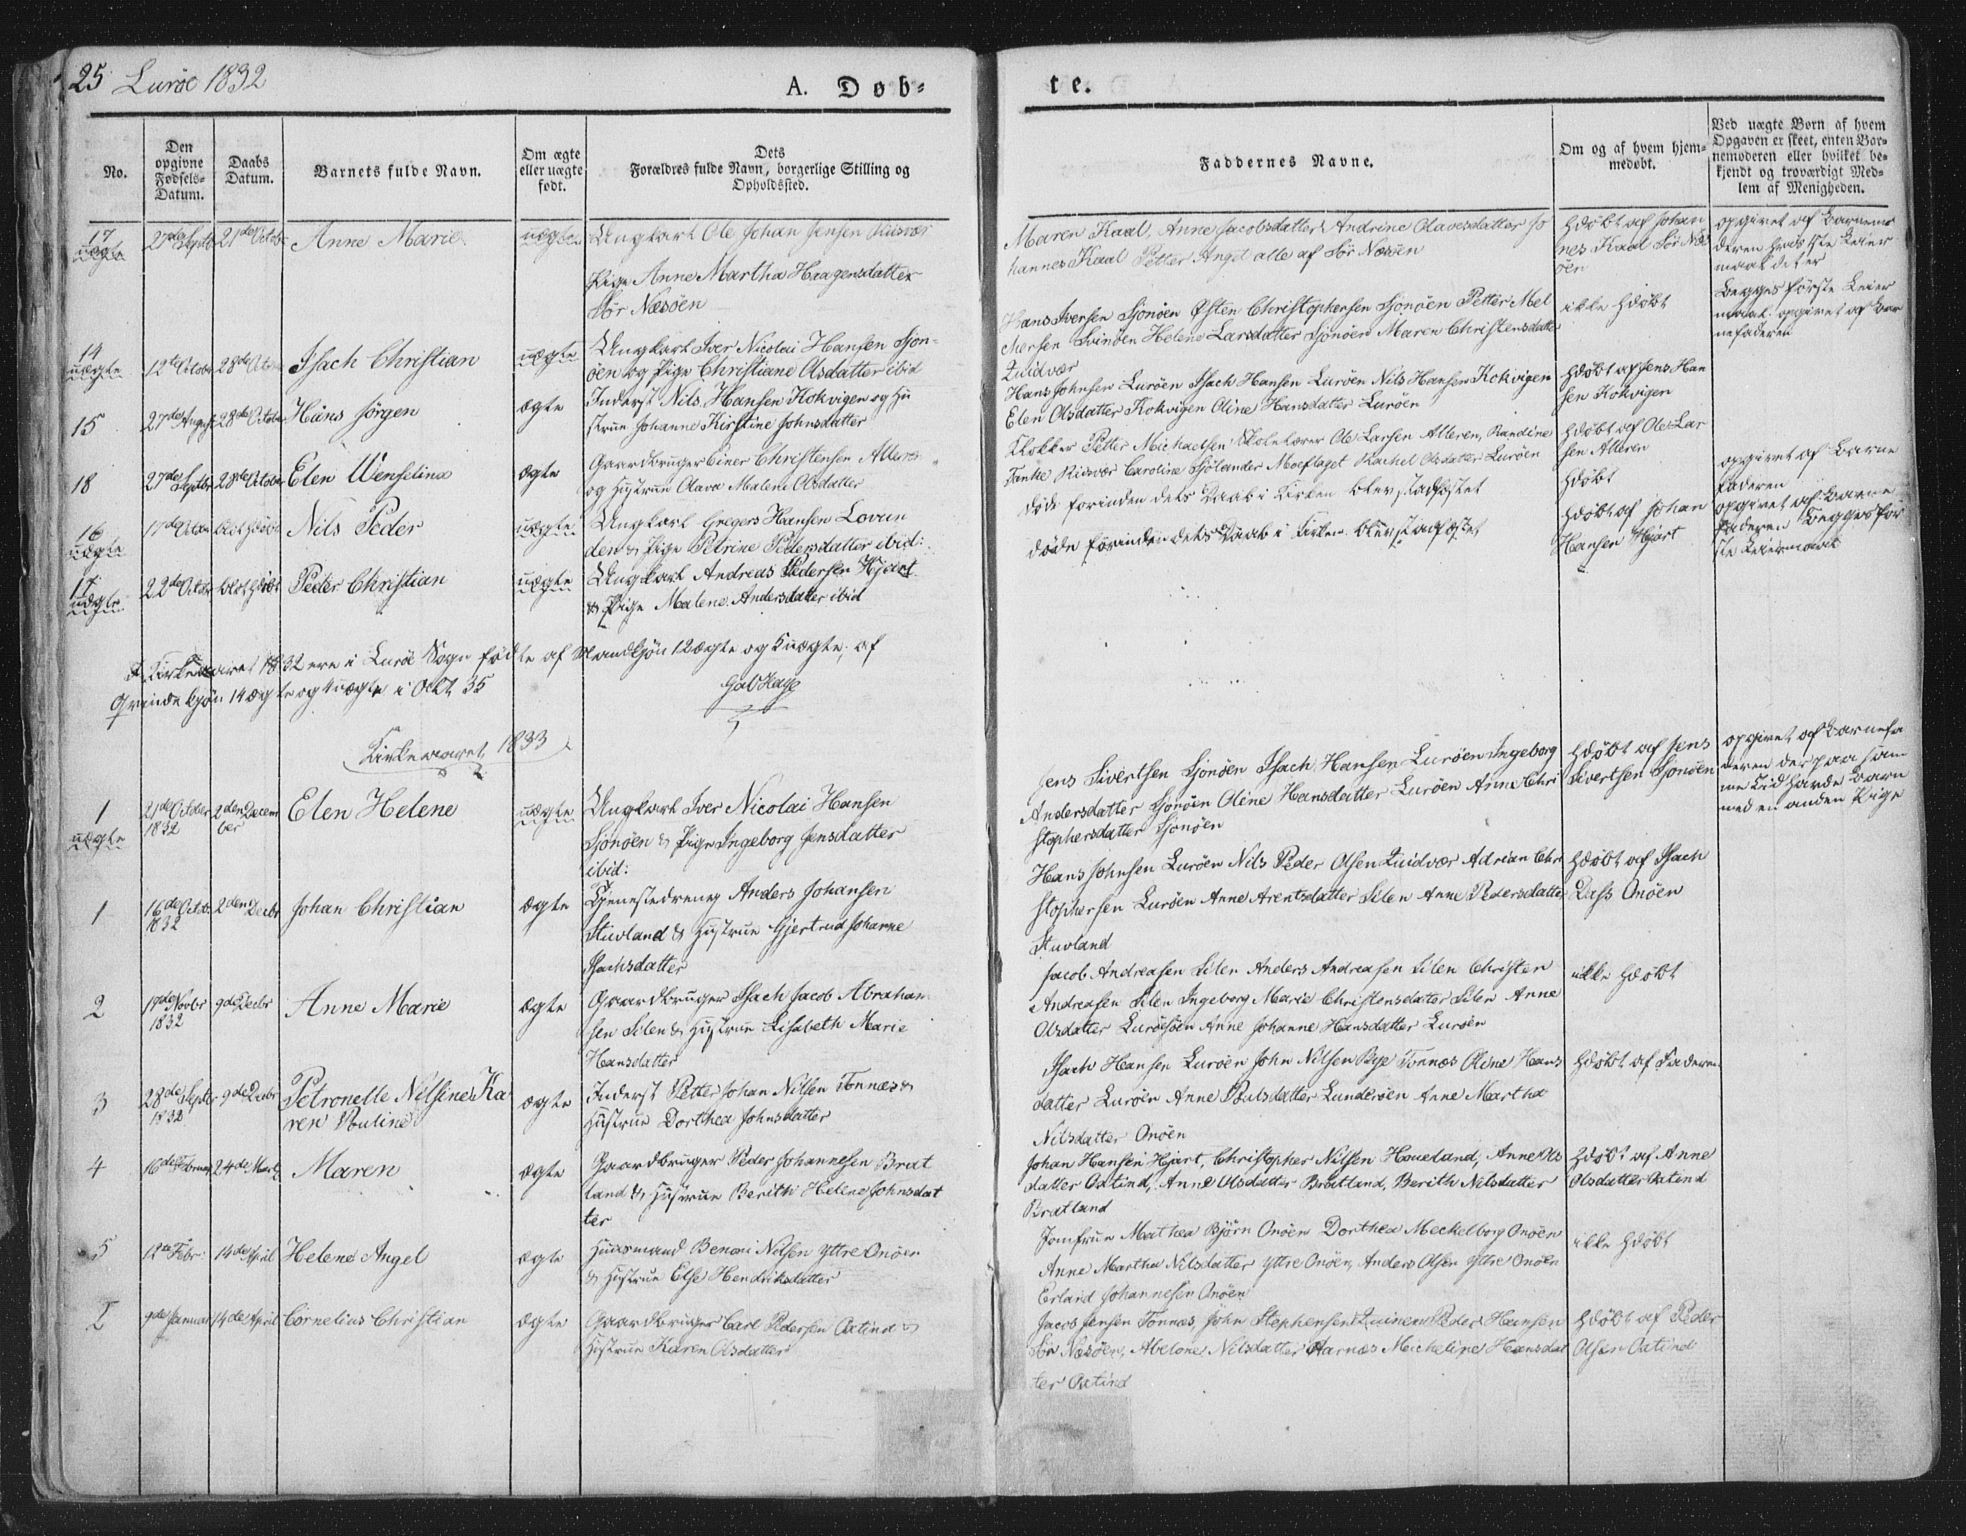 25 Lurøe 1832
A. Døb-
te.
No.
Den opgivne Fødsels-Datum.
Daabs Datum.
Barnets fulde Navn.
Om ægte eller uægte født.
Dets Forældres fulde Navn, borgerlige Stilling og Opholdssted.
Faddernes Navne.
Om og af hvem hjemmedøbt.
Ved uægte Børn af hvem Opgaven er skeet, enten Barnemoderen eller hvilket bekjendt og troværdigt Medlem af Menigheden.
17 uægte
21de Octob
Anne Marie
uægte
Ungkarl Ole Johan Jensen Riisvær
Pige Anne Martha Haagensdatter
Sør Næsøen
Maren Kaal, Anne Jacobsdatter Andrine Olavesdatter Jo
hannes Kaal Petter Angel alle af Sør Næsöen
Hdøbt af Johan
nes Kaal Sör Næs
öen
14 uægte
12te Octobr
28de Octob
Isach Christian
uægte
Ungkarl Iver Nicolai Hansen Sjon-
öen og Pige Christiane Olsdatter ibid
Hans Iversen Sjonöen Østen Christophersen Sjonöen Petter Mel
chersen Svinöen Helene Larsdatter Sjonöen Maren Christensdatter
Qvidvær
ikke Hdøbt
Begges første Leier
maal opgivet af Bar
nefaderen
15
27de August
28de Octobr
Hans Jörgen
ægte
Inderst Nils Hansen Kokvigen og Hu
strue Johanne Kirstine Johnsdatter
Hans Johnsen Luröen Isach Hansen Luröen Nils Hansen Kokvigen
Elen Olsdatter Kokvigen Oline Hansdatter Luröen
Hdøbt af Jens Han
sen Kokvigen
18
27de Septbr
28de Octobr
Elen Wenseline
ægte
Gaardbruger Einer Christensen Alteren
og Hustrue Olava Malene Olsdatter
Klokker Petter Michaelsen Skolelærer Ole Larsen Alteren, Randine
Tanke Riisvær Caroline Sjölander Moeflaget Rachel Olsdatter Luröen
Hdøbt af Ole Lar
sen Alteren
16 uægte
17de Octobr
blot Hdøbt
Nils Peder
uægte
Ungkarl Gregers Hansen Lovun
den & Pige Petrine Pedersdatter ibid:
døde forinden dets Daab i Kirken blev stadfæstet
Hdøbt
opgivet af Barne
faderen
17 uægte
22de Octobr
blot Hdøbt
Peder Christian
uægte
Ungkarl Andreas Pedersen Hjart
& Pige Malene Andersdatter ibid
døde forinden dets Daab i Kirken blev stadfæstet
Hdøbt af Johan
Hansen Hjart
opgivet af Barne
faderen Begges för
ste Leiermaal
I Kirkeaaret 1832 ere i Lurøe Sogn fødte af Mandkjøn 12 ægte og 5 uægte, af
Qvindekjøn 14 ægte og 4 uægte i Alt 35
Kirkeaaret 1833
1 uægte
21de Octobr 1832
2den Decem
ber
Elen Helene
uægte
Ungkarl Iver Nicolai Hansen
Sjonöen & Pige Ingeborg Jensdatter
ibid:
Jens Sivertsen Sjonöen Isach Hansen Luröen Ingeborg
Andersdatter Sjonöen Oline Hansdatter Luröen Anne Chri
stophersdatter Sjonöen
Hdøbt af Jens
Sivertsen Sjonöen
opgivet af Barnefa
deren der paa sam
me Tid havde Barn
med en anden Pige
1
16de Octob. 1832
2den Decbr
Johan Christian
ægte
Tjenestedreng Anders Johansen
Stuvland & Hustrue Gjertrud Johanne
Isachsdatter
Hans Johnsen Luröen Nils Peder Olsen Qvidvær Adrian Chri
stophersen Luröen Anne Arentsdatter Silen Anne Pedersdatter
Stuvland
Hdøbt af Isach
Dass Onöen
2
17de Novbr 1832
9de Decbr
Anne Marie
ægte
Gaardbruger Isach Jacob Abraham
sen Silen & Hustrue Lisabeth Marie
Hansdatter
Jacob Andreasen Silen Anders Andreasen Silen Christen
Andreasen Silen Ingeborg Marie Christensdatter Silen Anne
Olsdatter Luröesöen Anne Johanne Hansdatter Luröen
ikke Hdøbt
3
23de Septbr 1832
9de Decbr
Petronelle Nilsine Ka
ren Pouline
ægte
Inderst Petter Johan Nilsen Tonnes &
Hustrue Dorthea Johnsdatter
Isach Hansen Luröen John Nilsen Bye Tonnæs Oline Hans
datter Luröen Anne Poulsdatter Lunderöen Anne Martha
Nilsdatter Onöen
Hdøbt af Faderen
4
16de Februar
24de Marts
Maren
ægte
Gaardbruger Peder Johannesen Brat
land & Hustrue Berith Helene Johnsdat
ter
Johan Hansen Hjart, Christopher Nilsen Houeland, Anne Ols
datter Oxtind, Anne Olsdatter Bratland, Berith Nilsdatter
Bratland
Hdöbt af Anne
Olsdatter Oxtind
5
12te Febr:
14de April
Helene Angel
ægte
Huusmand Benoni Nilsen Yttre Onöen
& Hustrue Else Hendriksdatter
Jomfrue Mathea Björn Onöen Dorthea Meckelborg Onöen
Anne Martha Nilsdatter Yttre Onöen, Anders Olsen Yttre Onöen
Erland Johannesen Onöen
ikke Hdöbt
2
9de Januar
14de April
Cornelius Christian
ægte
Gaardbruger Carl Pedersen Oxtind &
Hustrue Karen Olsdatter
Jacob Jensen Tonnes, John Stephensen Peder Hansen
Sör Næsöen, Abelone Nilsdatter Micheline Hansdat
ter Oxtind
Hdöbt af Peder
Olsen Oxtind